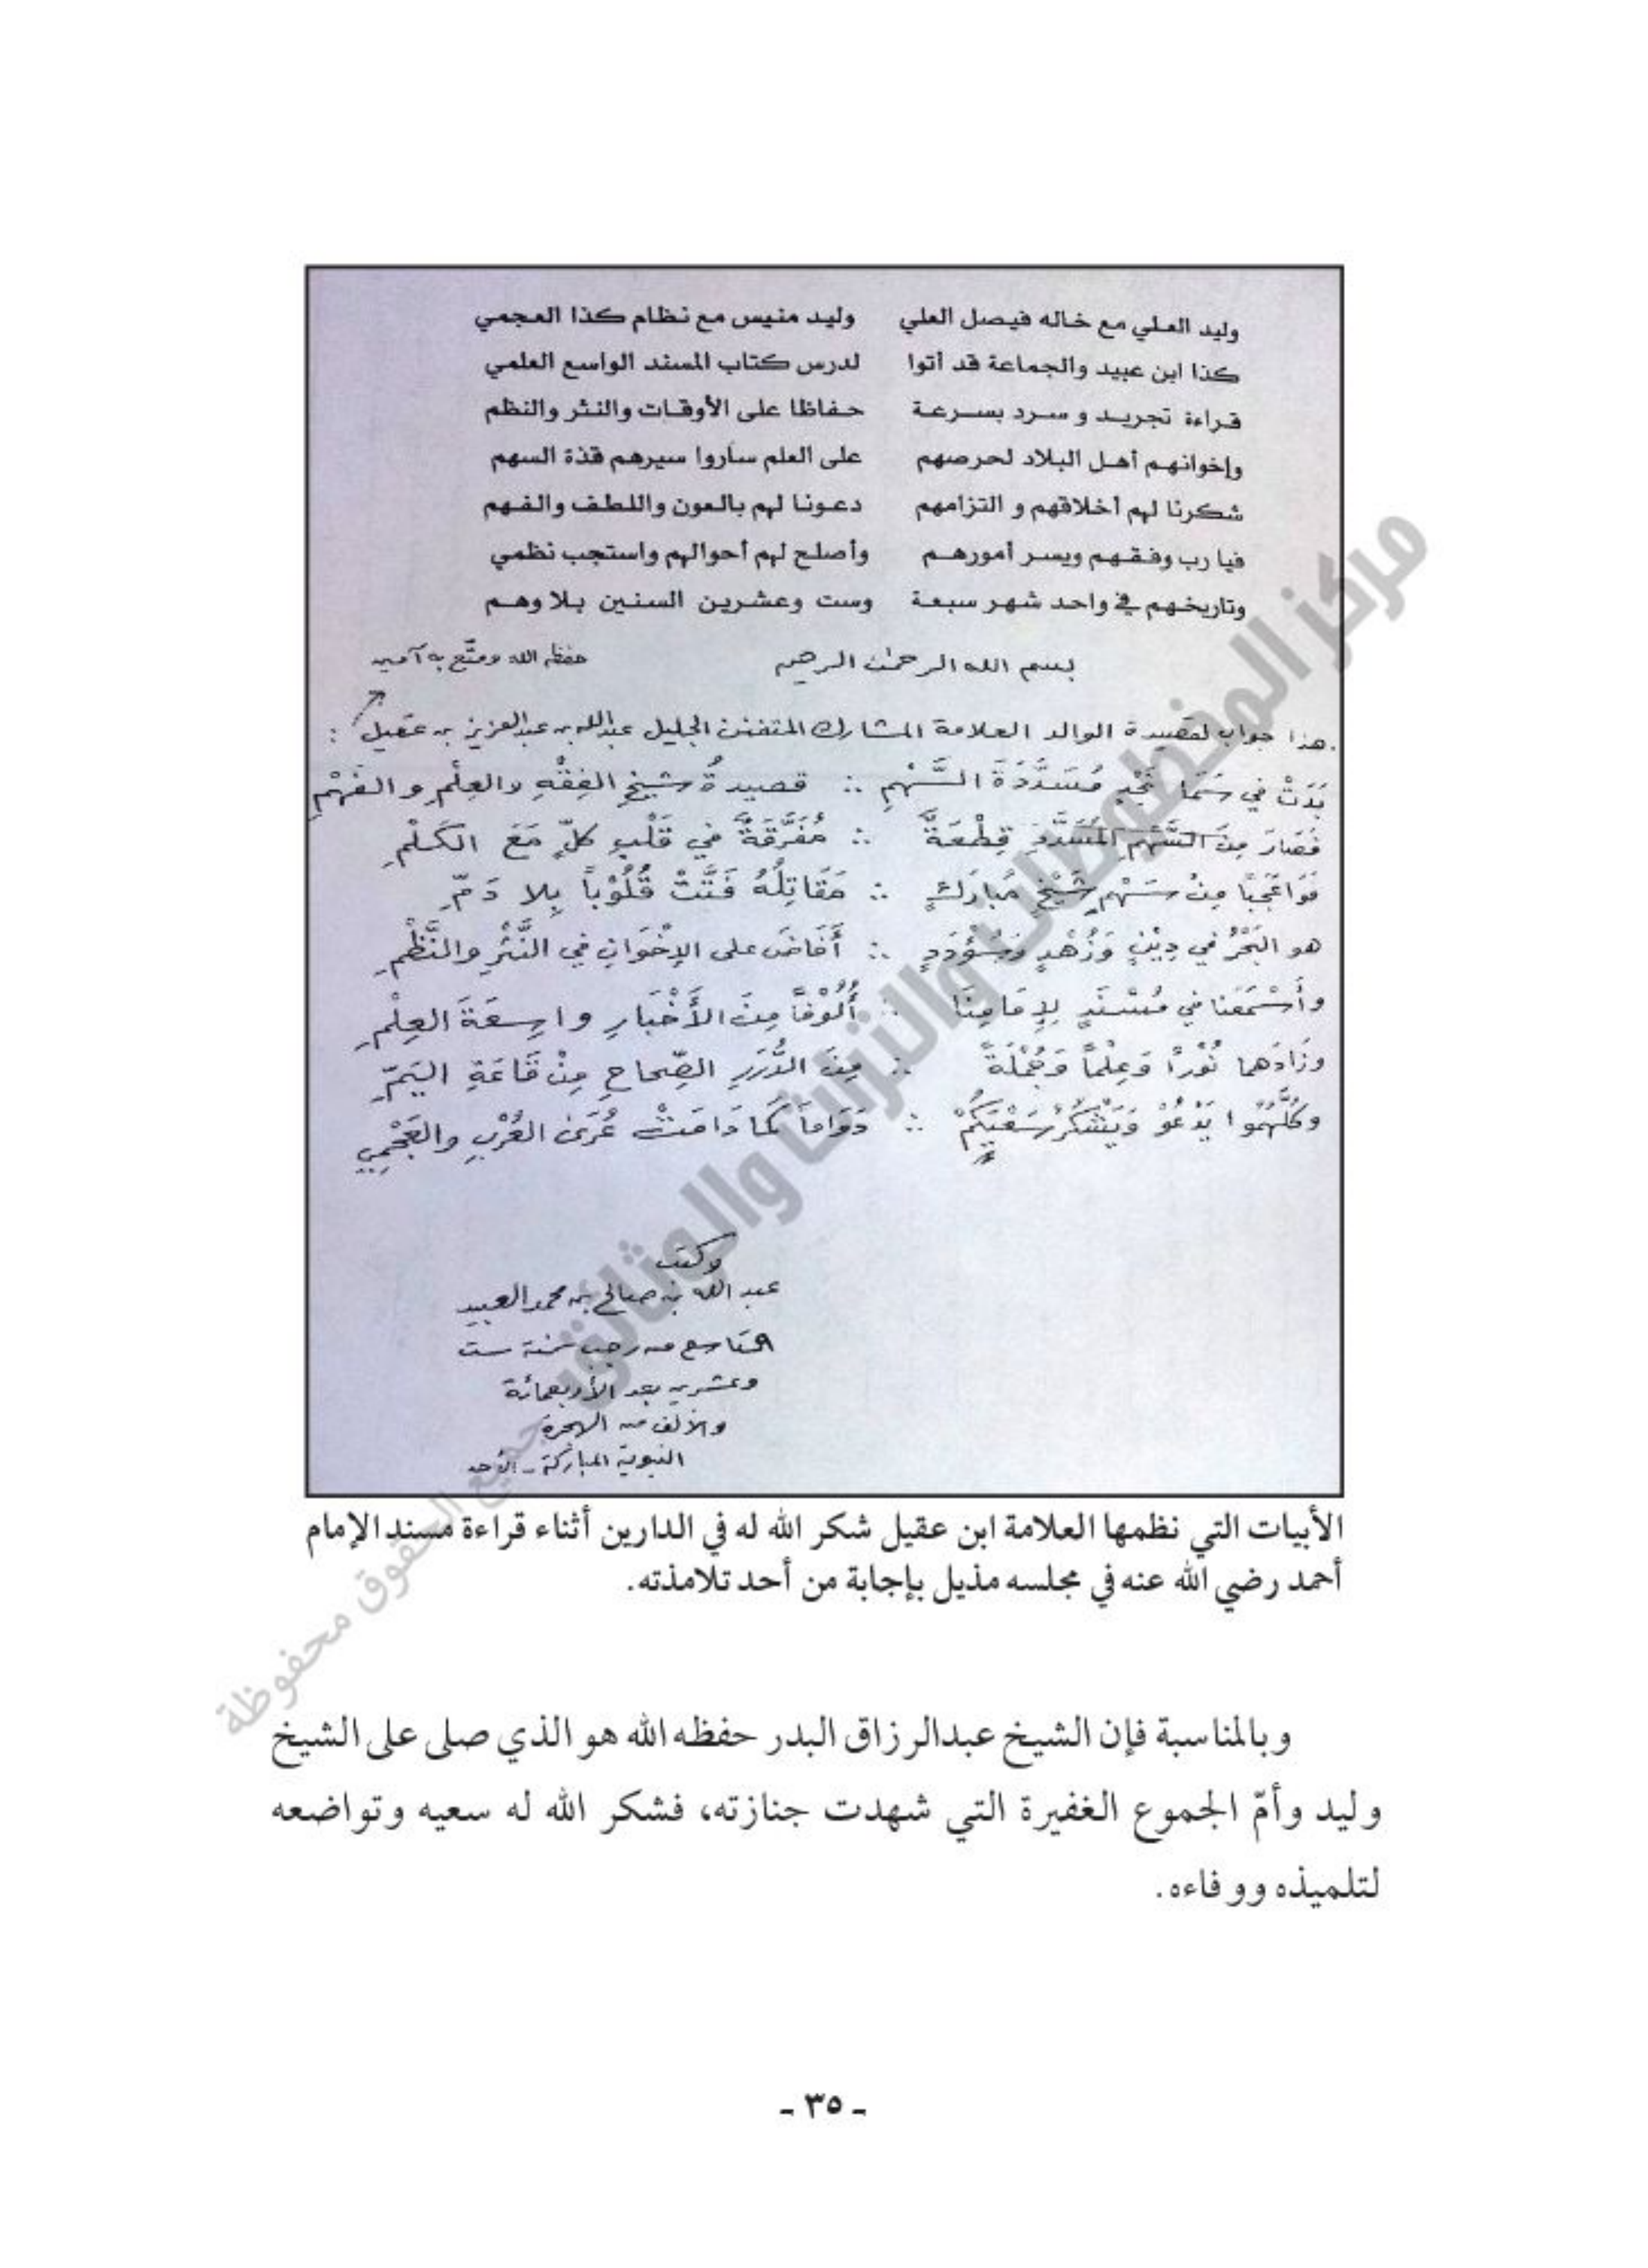 وليد العلي مع خاله فيصل العلي وليد منيس مع نظام كذا العجمي
كذا ابن عبيد والجماعة قد أتوا لدرس كتاب المسند الواسع العلمي
قراءة تجريد و سرد بسرعة حفاظا على الأوقات والنثر والنظم
وإخوانهم أهل البلاد لحرصهم على العلم ساروا سيرهم قذة السهم
شكرنا لهم أخلاقهم و التزامهم دعونا لهم بالعون واللطف والفهم
فيا رب وفقهم ويسر أمورهم وأصلح لهم أحوالهم واستجب نظمي
وتاريخهم في واحد شهر سبعة وست وعشرين السنين بلا وهم
بسم الله الرحمن الرحيم حفظه الله ومتّع به آمين
هذا جواب لقصيدة الوالد العلامة المشارك المتفنن الجليل عبدالله بن عبدالعزيز بن عقيل :
بَدَتْ في سَمَا نَجْدٍ مُسَدَّدَةَ السَّهْمِ ∴ قصيدةُ شيخِ الفِقْهِ والعِلْمِ والفَهْمِ
فَصَارَ مِنَ السَّهْمِ المُسَدَّدِ قِطْعَةً ∴ مُفَرَّقَةً في قَلْبِ كلٍّ مَعَ الكَلْمِ
فَوَاعَجَباً مِنْ سَهْمِ شَيْخٍ مُبارَكٍ ∴ مَقَاتِلُهُ فَتَّتْ قُلُوْباً بِلا دَمِّ
هو البَحْرُ في دِيْنٍ وَزُهْدٍ وَسُؤْدَدٍ ∴ أَفَاضَ على الإخْوَانِ في النَّثْرِ والنَّظْمِ
وأَسْمَعَنا في مُسْنَدٍ لِإمَامِنَا ∴ أُلُوْفاً مِنَ الأَخْبَارِ واسِعَةَ العِلْمِ
وزَادَهما نُوْراً وَعِلْماً وَجُمْلَةً ∴ مِنَ الدُّرَرِ الصِّحاحِ مِنْ قَاعَةِ اليَمِّ
وكُلُّهُمُوا يَدْعُوْ وَيَشْكُرُ سَعْيَكُمْ ∴ دَوَاماً كَمَا دَامَتْ عُرَى العُرْبِ والعُجْمِ
وكتب
عبد الله بن صالح بن محمد العبيد
التاسع من رجب سنة ست
وعشرين بعد الأربعمائة
والألف من الهجرة
النبوية المباركة - الأحد
الأبيات التي نظمها العلامة ابن عقيل شكر الله له في الدارين أثناء قراءة مسند الإمام
أحمد رضي الله عنه في مجلسه مذيل بإجابة من أحد تلامذته.
وبالمناسبة فإن الشيخ عبدالرزاق البدر حفظه الله هو الذي صلى على الشيخ
وليد وأمّ الجموع الغفيرة التي شهدت جنازته، فشكر الله له سعيه وتواضعه
لتلميذه ووفاءه.
- ٣٥ -
مركز المخطوطات والتراث والوثائق
جميع الحقوق محفوظة